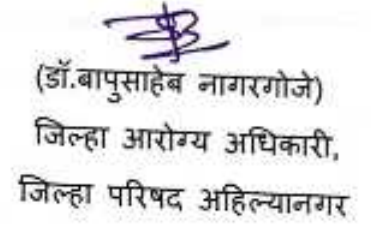 (डॉ.बापुसाहेब नागरगोजे)
जिल्हा आरोग्य अधिकारी,
जिल्हा परिषद अहिल्यानगर